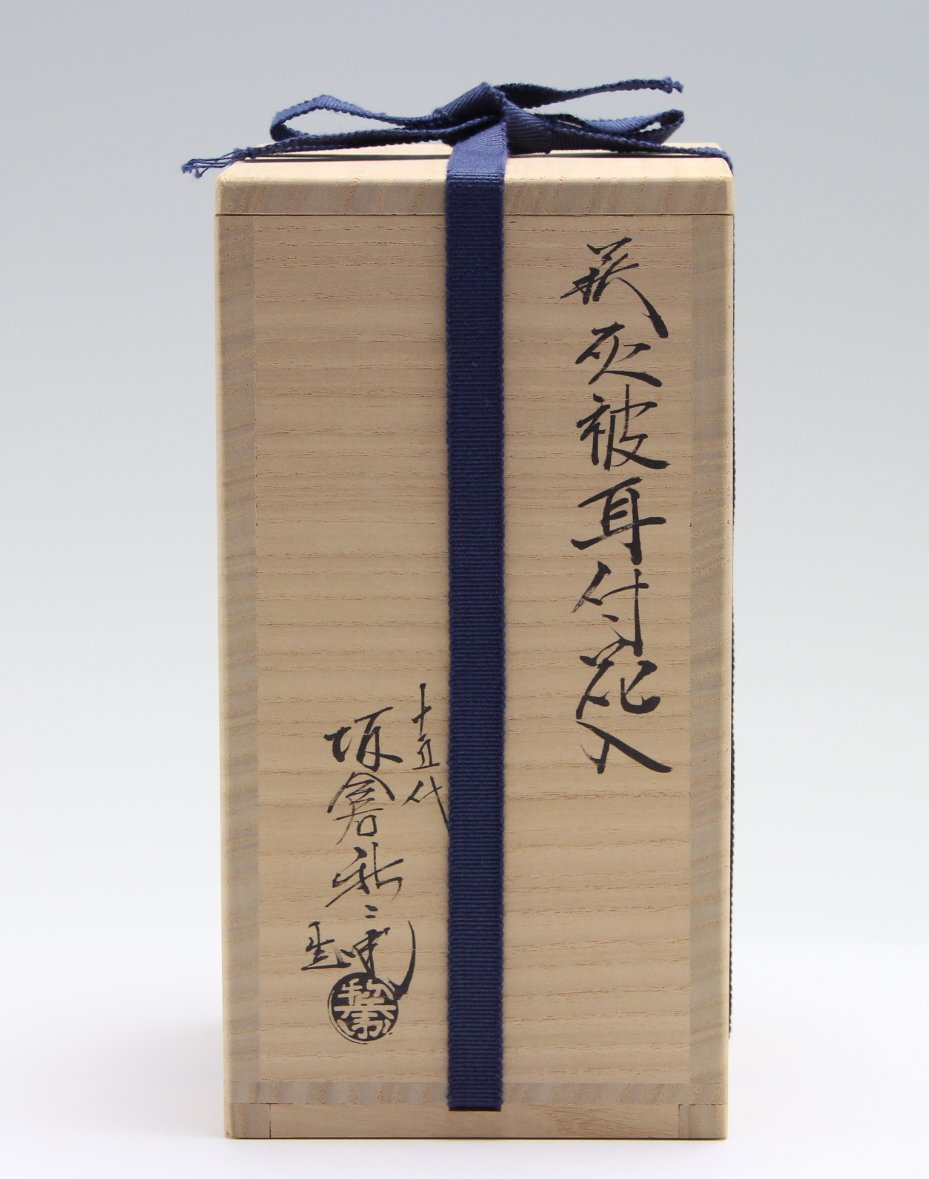 萩灰被耳付花入
十五代
坂倉新兵衛
造